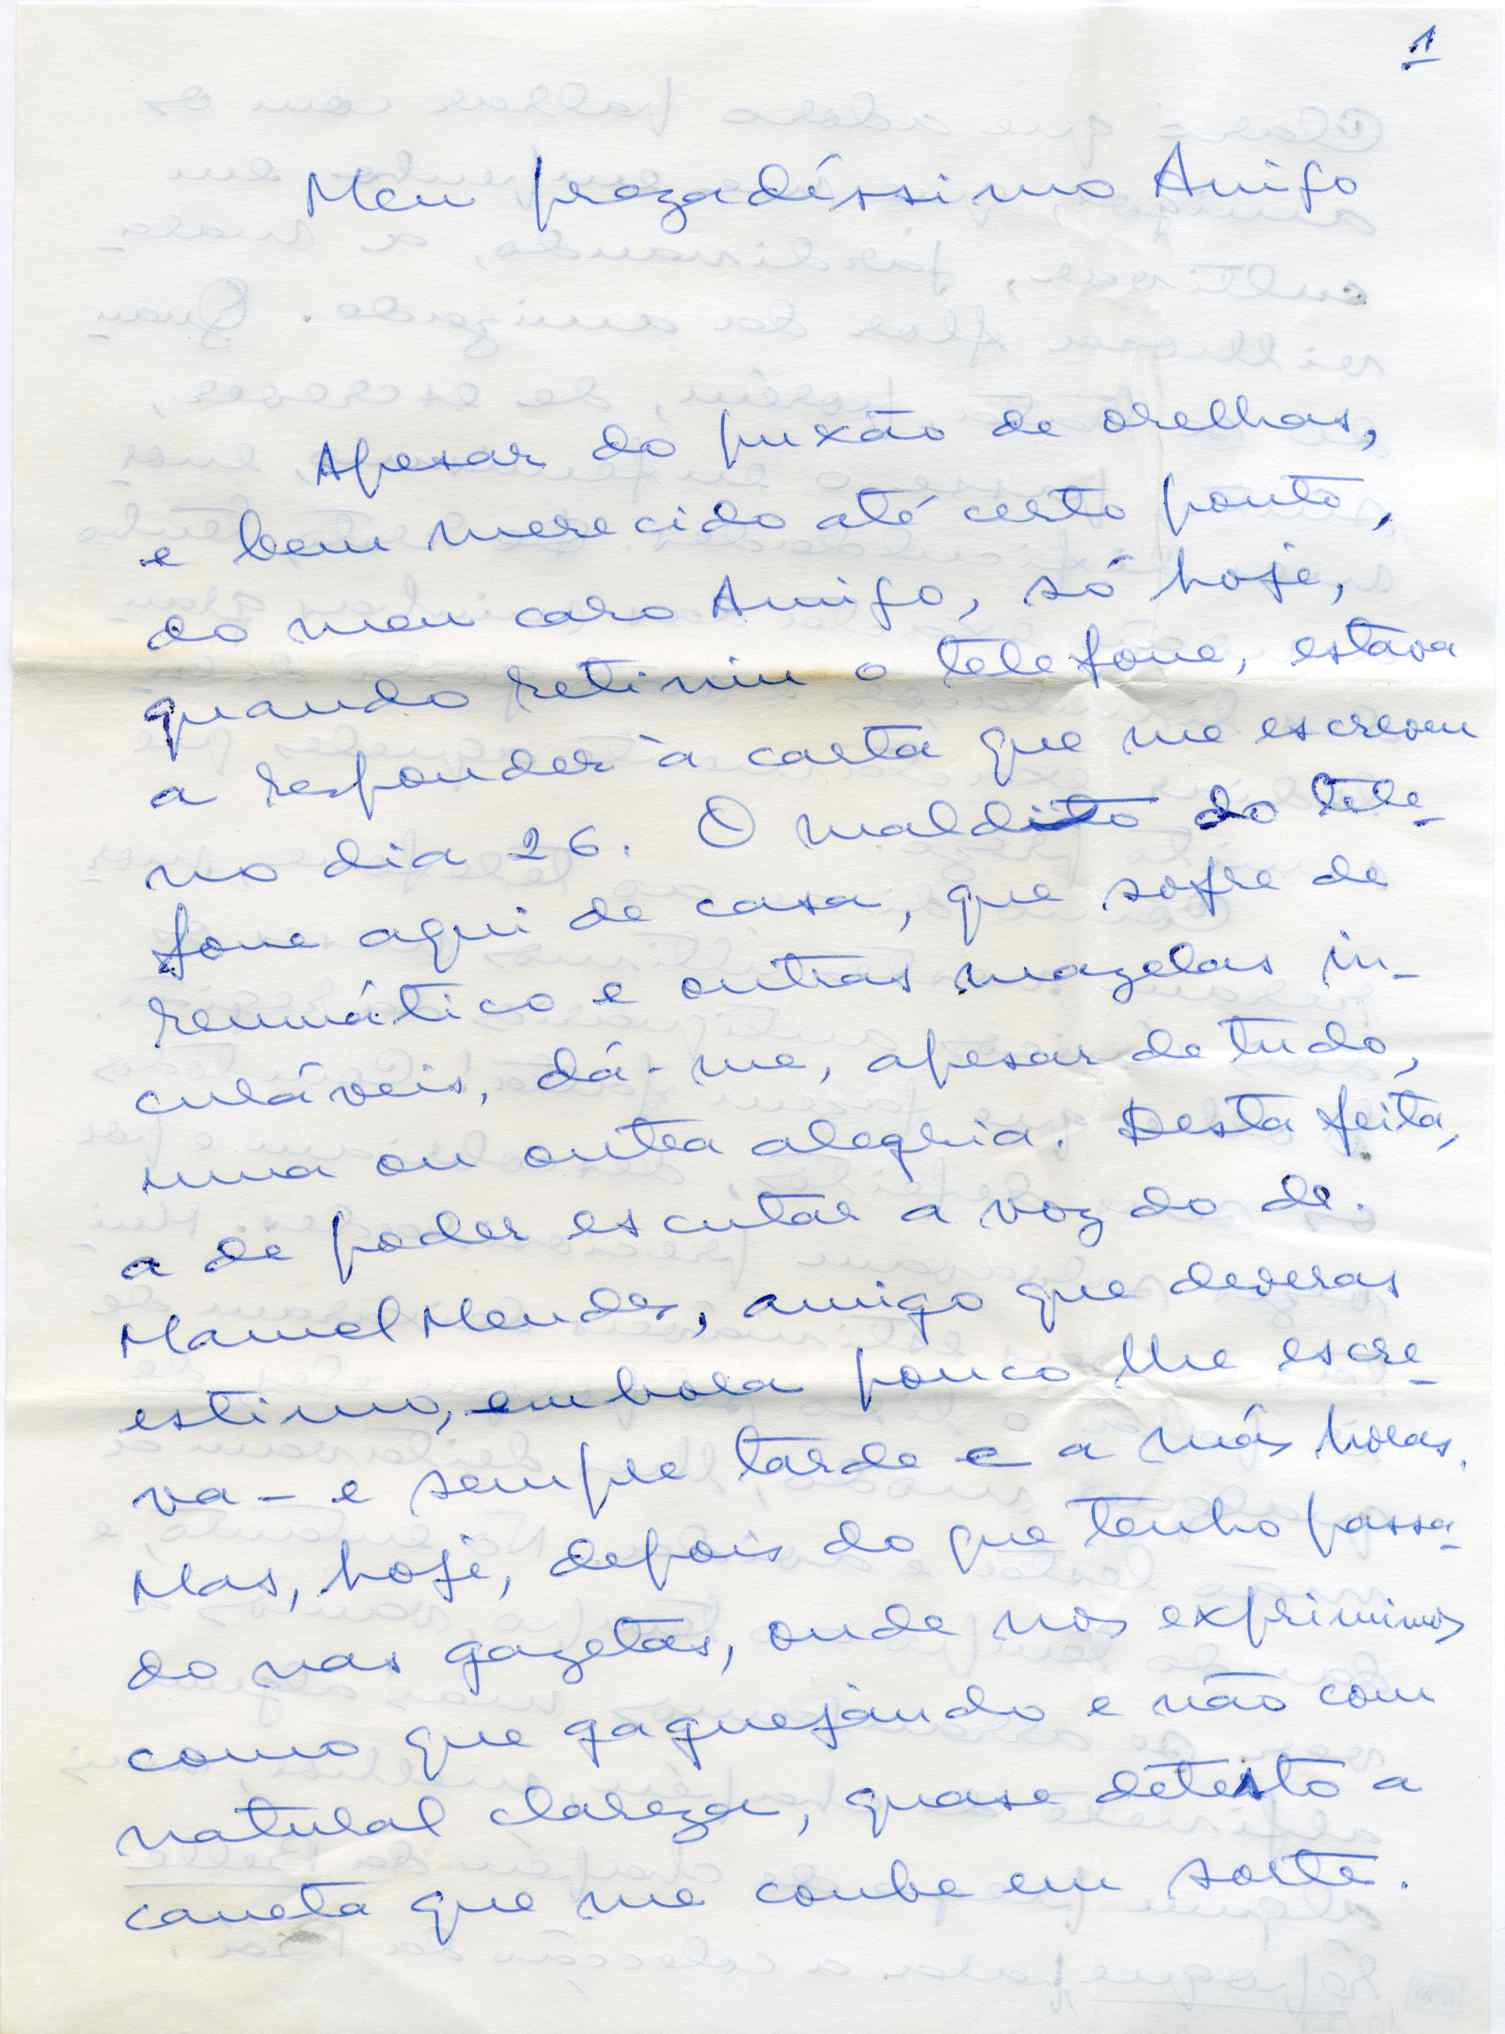 1
Meu prezadíssimo Amigo
Apesar do puxão de orelhas,
e bem merecido até certo ponto,
do meu caro Amigo, só hoje,
quando retiniu o telefone, estava
a responder à carta que me escreveu
no dia 26. O maldito do tele-
fone aqui de casa, que sofre de
reumático e outras mazelas in-
curáveis, dá-me, apesar de tudo,
uma ou outra alegria. Desta feita,
a de poder escutar a voz do dr.
Manuel Mendes, amigo que deveras
estimo, embora pouco lhe escre-
va - e sempre tarde e a más horas.
Mas, hoje, depois do que tenho passa-
do nas gazetas, onde nos exprimimos
como que gaguejando e não com
natural clareza, quase detesto a
caneta que me coube em sorte.